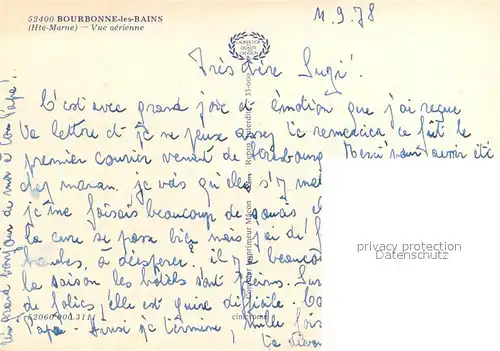 52400 BOURBONNE-les-BAINS
(Hte-Marne) — Vue aérienne
11.9.78
Très chère Suzi!
C'est avec grand joie et émotion que j'ai reçue
ta lettre et je ne peux assez te remercier ce fût le
premier courier venant de Strasbourg Merci d'avoir été
chez maman. je vois qu'elle s'y met
je me faisais beaucoup de soucis et
la cure se passe bien mais j'ai de l'
à désespérer. il y a beaucou
la saison les hotels sont pleins. Sur
de folies, elle est guire difficile.
Papa - Ainsi je termine, mille fois
ta
un grand bonjour de moi à ton Papa!
52060 900.3111
Combier Imprimeur Mâcon
Repro. interdite
cim
privacy protection